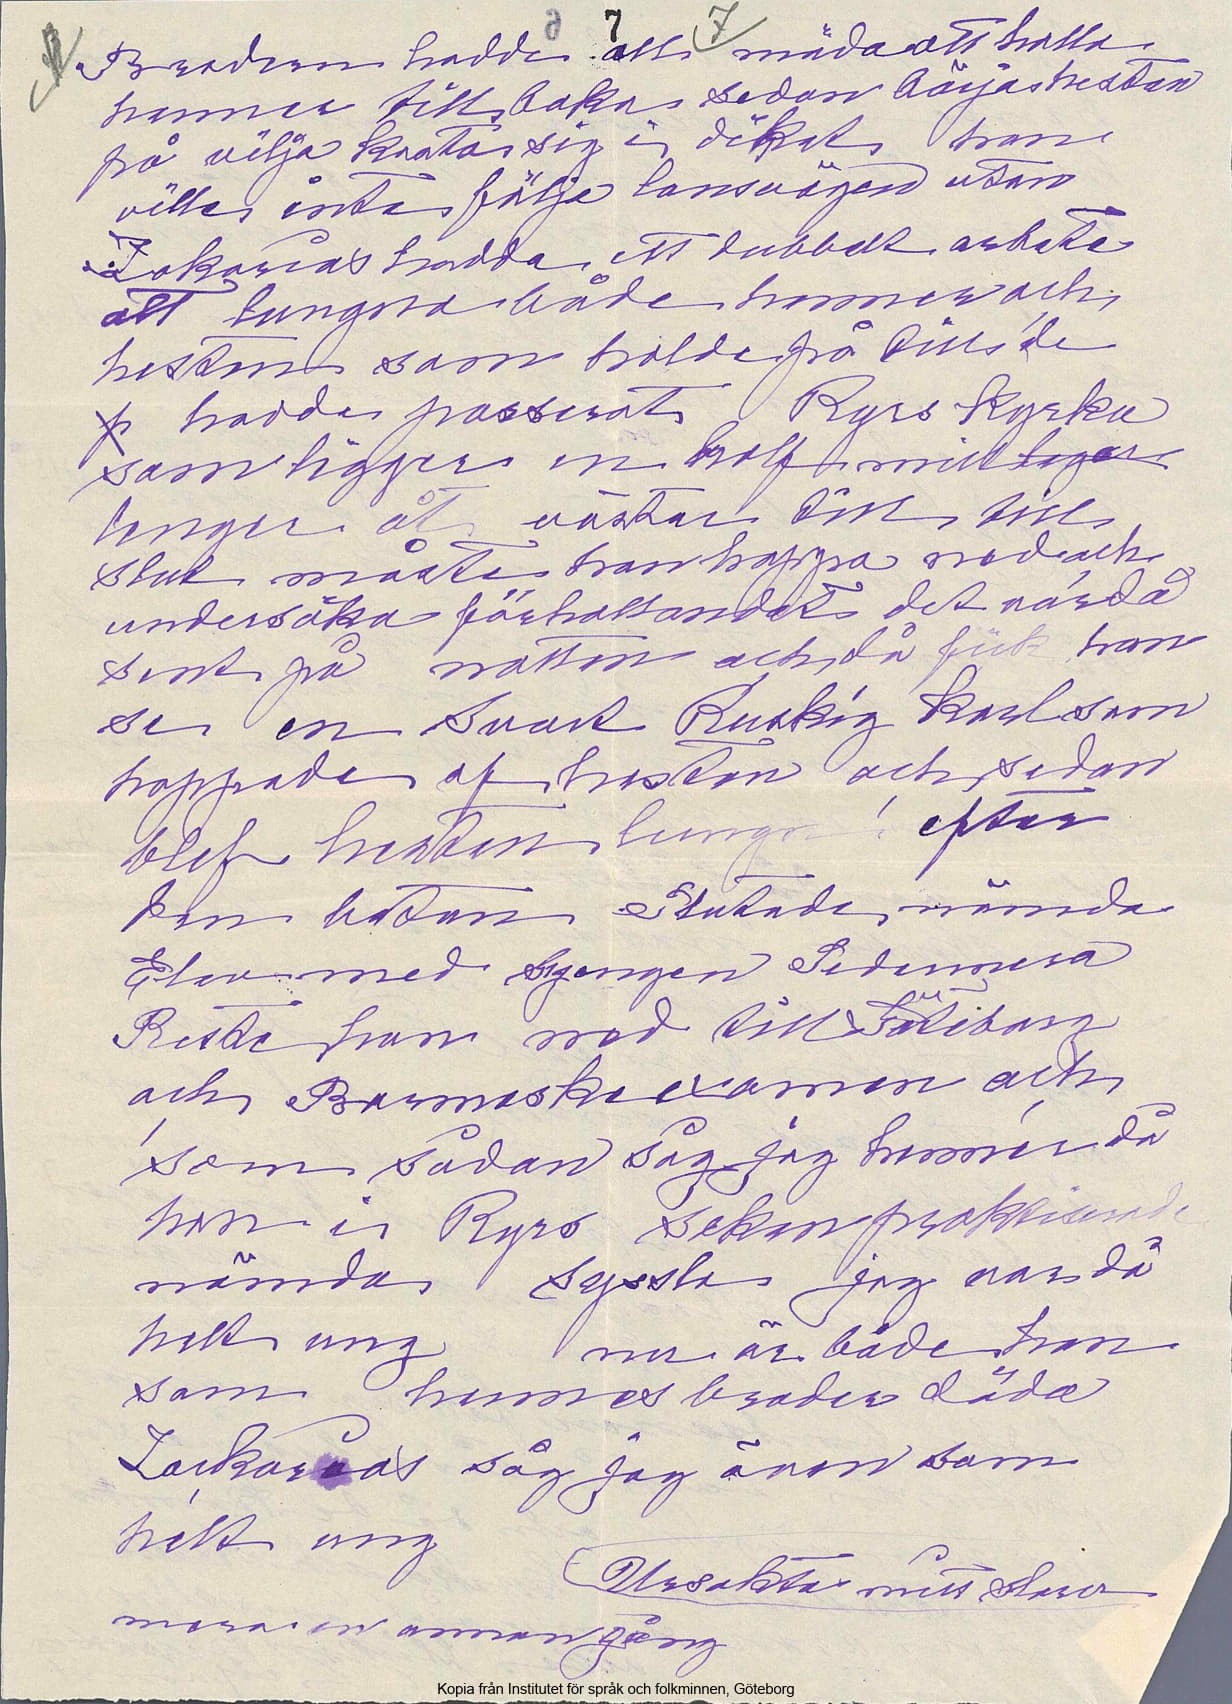 6 7 7
Brodern hadde all möda att holla
henner tillbaka sedan börjas hesten
på vilja kasta sig i diket han
ville inte följa lansvägen utan
Zakarias hadde ett dubbelt arbete
att lungna både henner och
hesten som holde på tills de
hadde passerat Ryrs Kyrka
som ligger en half mill
lenger åt väster till till
slut måste han hoppa ned och
undersöka förhollandet det var då
sent på natten och då fick han
se en svart Ruskig karl som
hoppade af hesten och sedan
blef hesten lungn! efter
den betan Slutade nämda
Elev med Sedermera
Reste hon ned till Göteborg
och Barnmorske examen och
som sådan såg jag henner då
hon i Ryrs seken praktiserade
nämda syssla jag var då
helt ung nu är både hon
som hennes broder döda
Zackarias såg jag även som
helt ung
Ursekta mitt slarv
mera en annan gång
Kopia från Institutet för språk och folkminnen, Göteborg